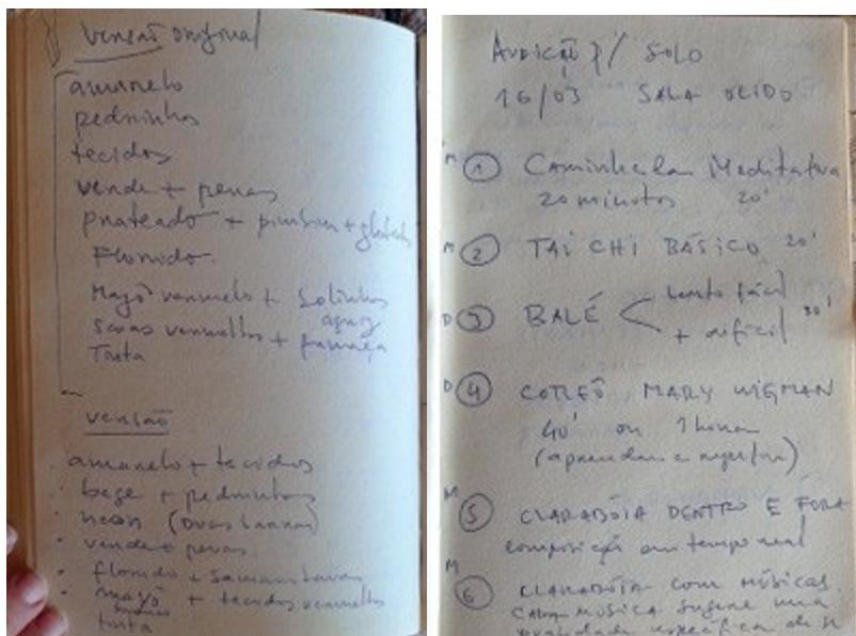 versão original
amarelo
pedrinhos
tecidos
verde + penas
prateado +
Florido
Mayô vermelho +
Sacas vermelhos +
Tinta
versão
amarelo + tecidos
bege + pedrinhos
neon (
verde + penas
florido +
mayô + tecidos vermelhos
tinta
AUDIÇÃO P/ SOLO
16/03 SALA OLIDO
M ① Caminhada Meditativa
20 minutos 20'
M ② TAI CHI BÁSICO 20'
D ③ BALÉ < lento fácil
+ difícil 30'
D ④ COREÔ MARY WIGMAN
40' ou 1 hora
(aprender e repetir)
M ⑤ CLARABÓIA DENTRO E FORA
composição em tempo real
M ⑥ CLARABÓIA com MÚSICAS.
CADA MÚSICA sugere uma
qualidade específica de